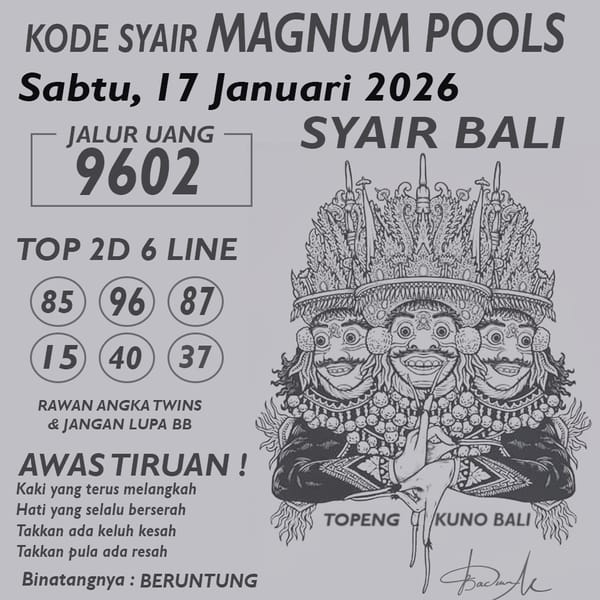 KODE SYAIR MAGNUM POOLS
Sabtu, 17 Januari 2026
JALUR UANG
9602
SYAIR BALI
TOP 2D 6 LINE
85 96 87
15 40 37
RAWAN ANGKA TWINS
& JANGAN LUPA BB
AWAS TIRUAN !
Kaki yang terus melangkah
Hati yang selalu berserah
Takkan ada keluh kesah
Takkan pula ada resah
Binatangnya : BERUNTUNG
TOPENG KUNO BALI